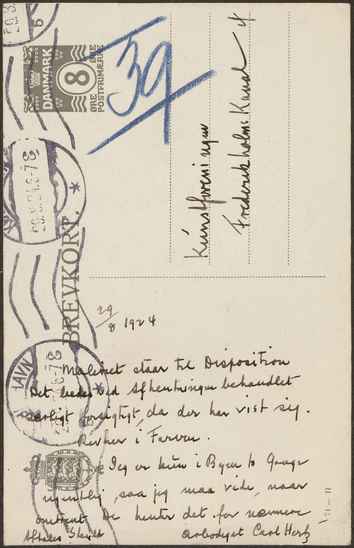 DANMARK
8
ØRE
ØRE
POSTFRIMÆRKE
39
BREVKORT.
Kunstforeningen
Frederiksholms Kanal 4
29/8 1924
Maleriet staar til Disposition
Det bedes ved Afhentningen behandlet
særligt forsigtigt, da der har vist sig
Revner i Farven.
Jeg er kun i Byen to Gange
ugentlig, saa jeg maa vide, naar
omtrent De henter det. for nærmere
Aftales Skyld
Ærbødigst Carl Hertz